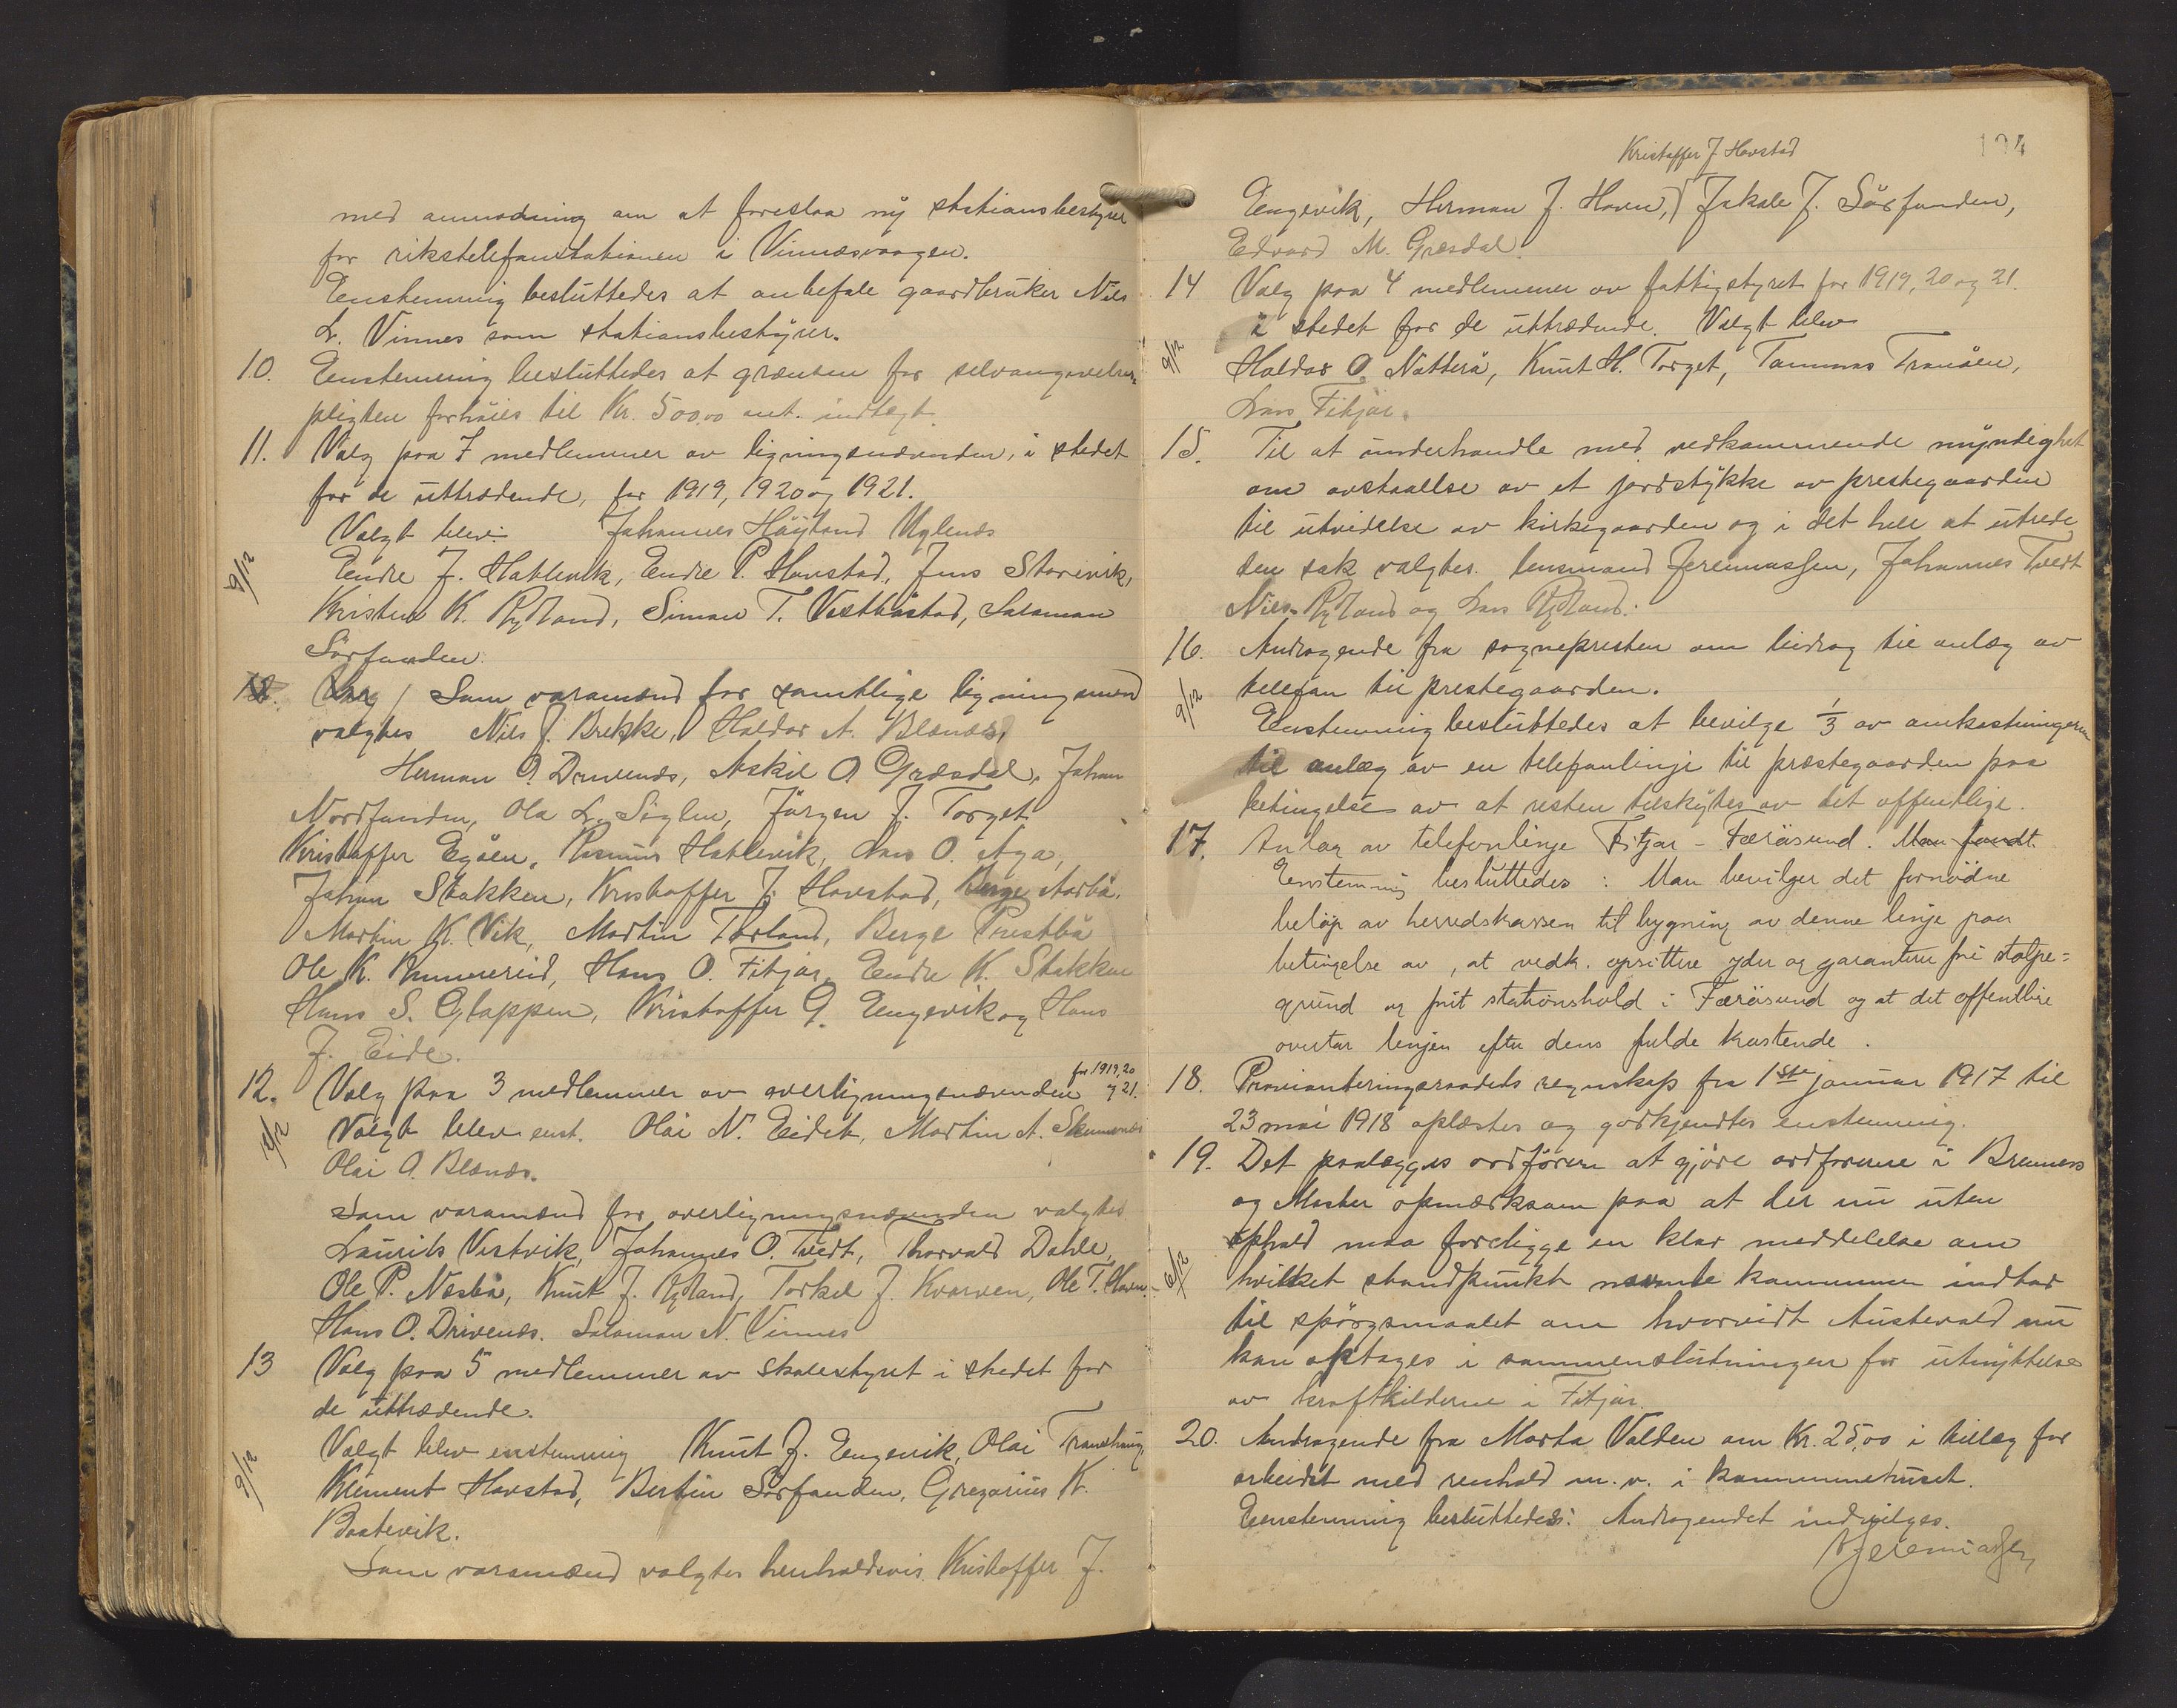 med anmodning om at foreslaa ny stationsbestyrer
for rikstelefonstationen i Vinnesvaagen.
Eenstemmig besluttedes at anbefale gaardbruker Nils
L. Vinnes som stationsbestyrer.
10. Eenstemmig besluttedes at grænsen for selvangivelses-
pligten forhöies til Kr. 500,00 ant. indtægt.
11. Valg paa 7 medlemmer av ligningsnævnden, i stedet
for de uttrædende, for 1919, 1920 og 1921.
Valgt blev: Johannes Höyland Uglenæs
9/12
Endre J. Hatlevik, Endre P. Havstad, Jens Storevik,
Kristen K. Rydland, Simon T. Vestböstad, Salomon
Sörfonden.
Som varamænd for samtlige ligningsmænd
valgtes Nils J. Brekke, Haldor A. Blænæs,
Herman O. Drivenæs, Askil O. Græsdal, Johan
Nordfonden, Ola L. Siglen, Jörgen J. Torget
Kristoffer Egöen, Rasmus Hatlevik, Lars O. Aga,
Johan Stokken, Kristoffer J. Havstad, Berge Aarbö.
Martin K. Vik, Martin Torland, Berge Prestbö
Ole K. Rimmereid, Hans O. Fitjar, Endre K. Stokken
Hans S. Gloppen, Kristoffer G. Engevik og Hans
J. Eide.
12. Valg paa 3 medlemmer av overligningsnævnden for 1919, 20 og 21.
12/12
Valgt blev enst. Olai N. Eidet, Martin A. Skumsnæs
Olai O. Blænæs.
Som varamænd for overligningsnævnden valgtes
Laurits Vestvik, Johannes O. Tvedt, Thorvald Dahle,
Ole P. Næsbö, Knut J. Rydland, Torkel J. Kvarven, Ole T. Haven.
Hans O. Drivenæs. Salomon N. Vinnes
13 Valg paa 5 medlemmer av skolestyret i stedet for
de uttrædende.
Valgt blev enstemmig Knut J. Engevik, Olai Traushaug
9/12
Klement Havstad, Bertin Sörfonden, Gregorius K.
Baatevik.
Som varamænd valgtes henholdsvis Kristoffer J.
124
Kristoffer J Havstad
Engevik, Herman J. Haven, Jakob J. Sörfonden,
Edvard M. Græsdal.
14 Valg paa 4 medlemmer av fattigstyret for 1919, 20 og 21.
i stedet for de uttrædende. Valgt blev
9/12
Haldor O. Nötterö, Knut H. Torget, Tammas Tranöen,
Lars Fitjar.
15. Til at underhandle med vedkommende myndighet
om avstaaelse av et jordstykke av prestegaarden
til utvidelse av kirkegaarden og i det hele at utrede
den sak valgtes lensmand Jeremiassen, Johannes Tvedt
Nils Rydland og Lars Rydland.
16. Andragende fra sognepresten om bidrag til anlæg av
telefon til prestegaarden.
9/12
Enstemmig besluttedes at bevilge 1/3 av omkostningerne
til anlæg av en telefonlinje til præstegaarden paa
betingelse av at resten tilskytes av det offentlige.
17. Anlæg av telefonlinje Fitjar - Færöisund. Man fandt.
Eenstemmig besluttedes: Man bevilger det fornödne
beløp av herredskassen til bygning av denne linje paa
betingelse av, at vedk. opsittere yder og garanterer fri stolpe=
grund og frit stationshold i Færöisund og at det offentlige
overtar linjen efter dens fulde kostende.
18. Provianteringsraadets regnskap fra 1ste januar 1917 til
23 mai 1918 oplæstes og godkjendtes enstemmig.
19. Det paalægges ordföreren at gjöre ordförerne i Bremnes
og Moster opmerksom paa at der nu uten
ophold maa foreligge en klar meddelelse om
6/12
hvilket standpunkt nævnte kommuner indtar
til spörgsmaalet om hvorvidt Austevold nu
kan optages i sammenslutningen for utnyttelse
av kraftkilderne i Fitjar.
20. Andragende fra Marta Valden om Kr. 25,00 i tillæg for
arbeidet med renhold m. v. i kommunehuset.
Eenstemmig besluttedes: Andragendet indvilges.
N Jeremiassen